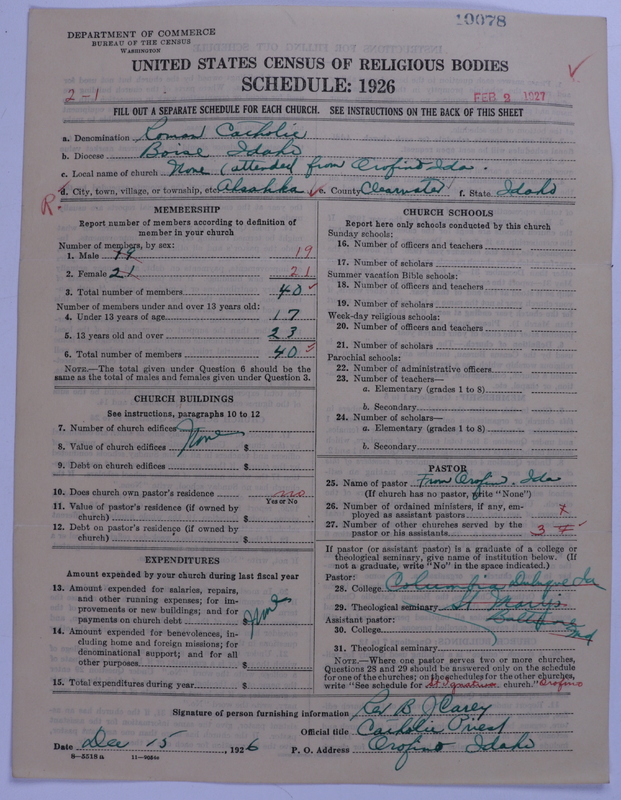 19078
DEPARTMENT OF COMMERCE
BUREAU OF THE CENSUS
WASHINGTON
UNITED STATES CENSUS OF RELIGIOUS BODIES
SCHEDULE: 1926
2-1
FEB 2 1927
FILL OUT A SEPARATE SCHEDULE FOR EACH CHURCH. SEE INSTRUCTIONS ON THE BACK OF THIS SHEET
a. Denomination Roman Catholic
b. Diocese Boise Idaho
c. Local name of church None (attended from Orofino Ida.
d. City, town, village, or township, etc. Ahsahka e. County Clearwater f. State Idaho
R.
MEMBERSHIP
Report number of members according to definition of
member in your church
Number of members, by sex:
1. Male 19 19
2. Female 21 21
3. Total number of members 40
Number of members under and over 13 years old:
4. Under 13 years of age 17
5. 13 years old and over 23
6. Total number of members 40
NOTE.—The total given under Question 6 should be the
same as the total of males and females given under Question 3.
CHURCH BUILDINGS
See instructions, paragraphs 10 to 12
7. Number of church edifices None
8. Value of church edifices $
9. Debt on church edifices $
10. Does church own pastor's residence no
Yes or No
11. Value of pastor's residence (if owned by
church) $
12. Debt on pastor's residence (if owned by
church) $
EXPENDITURES
Amount expended by your church during last fiscal year
13. Amount expended for salaries, repairs,
and other running expenses; for im-
provements or new buildings; and for
payments on church debt $ None
14. Amount expended for benevolences, in-
cluding home and foreign missions; for
denominational support; and for all
other purposes $
15. Total expenditures during year $
CHURCH SCHOOLS
Report here only schools conducted by this church
Sunday schools:
16. Number of officers and teachers
17. Number of scholars
Summer vacation Bible schools:
18. Number of officers and teachers
19. Number of scholars
Week-day religious schools:
20. Number of officers and teachers
21. Number of scholars
Parochial schools:
22. Number of administrative officers
23. Number of teachers—
a. Elementary (grades 1 to 8)
b. Secondary
24. Number of scholars—
a. Elementary (grades 1 to 8)
b. Secondary
PASTOR
25. Name of pastor From Orofino. Ida
(If church has no pastor, write "None")
26. Number of ordained ministers, if any, em-
ployed as assistant pastors x
27. Number of other churches served by the
pastor or his assistants 3
If pastor (or assistant pastor) is a graduate of a college or
theological seminary, give name of institution below. (If
not a graduate, write "No" in the space indicated.)
Pastor:
28. College Columbia
29. Theological seminary St Marys
Assistant pastor: Baltimore
30. College Md
31. Theological seminary
NOTE.—Where one pastor serves two or more churches,
Questions 28 and 29 should be answered only on the schedule
for one of the churches; on the schedules for the other churches,
write "See schedule for St Ignatius church." Orofino
Signature of person furnishing information Rev B J Carey
Official title Catholic Priest
Date Dec 15, 1926 P. O. Address Orofino Idaho
8—5518 a 11—9684a